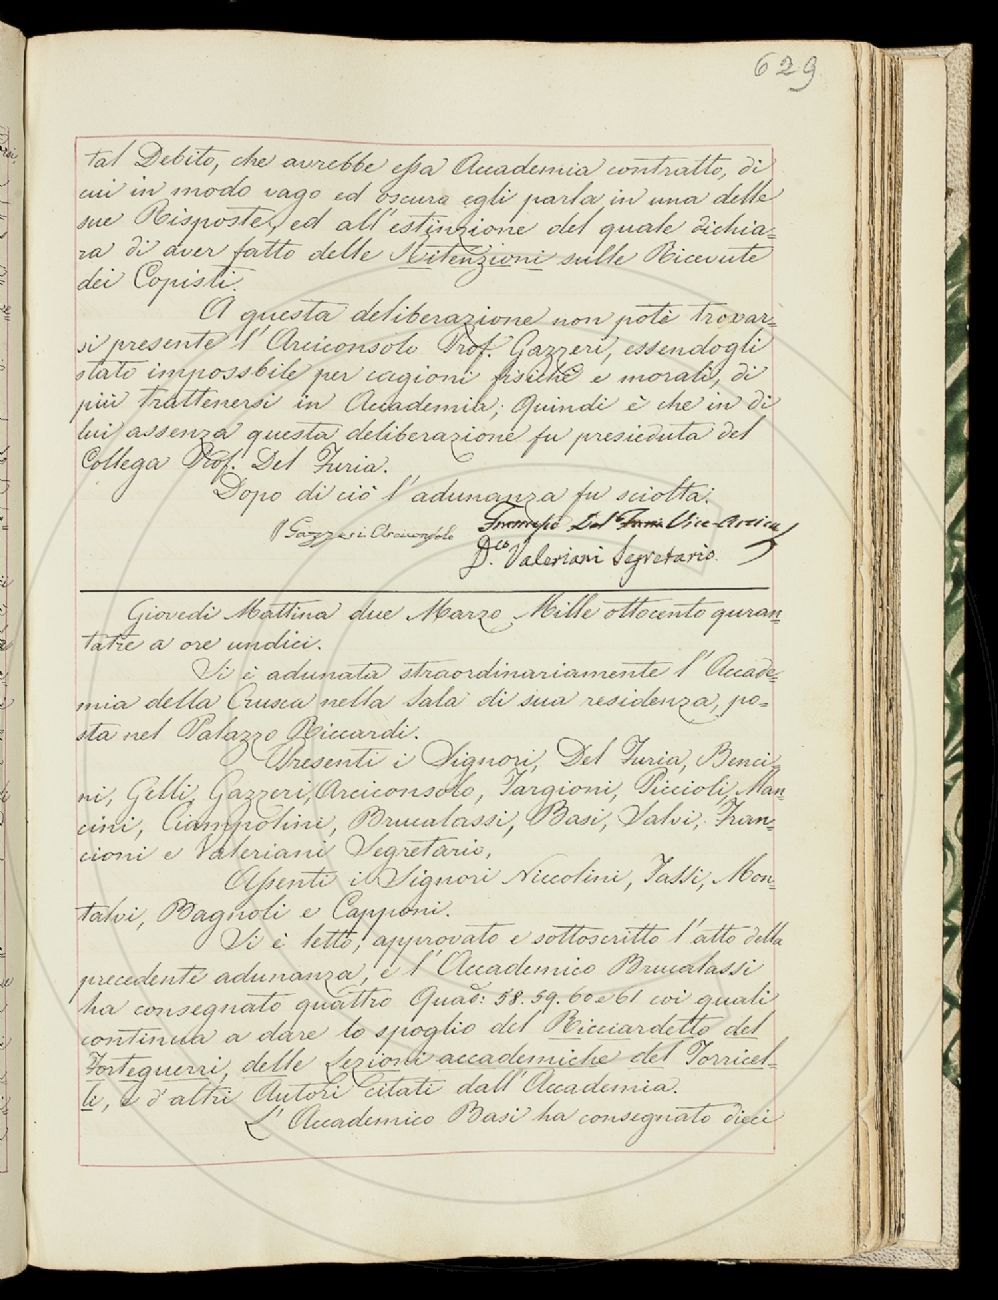 629
tal Debito, che avrebbe essa Accademia contratto, di
cui in modo vago ed oscuro egli parla in una delle
sue Risposte, ed all'estinzione del quale dichia=
ra di aver fatto delle Ritenzioni sulle Ricevute
dei Copisti.
A questa deliberazione non potè trovar=
si presente l'Arciconsolo Prof. Gazzeri, essendogli
stato impossbile per cagioni fisiche e morali, di
più trattenersi in Accademia; Quindi è che in di
lui assenza questa deliberazione fu presieduta del
Collega Prof. Del Furia.
Dopo di ciò l'adunanza fu sciolta.
Francesco Del Furia Vice-Arcico
Gazzeri Arciconsolo
D.co Valeriani Segretario.
Giovedi Mattina due Marzo Mille ottocento quran=
tatre a ore undici.
Si è adunata straordinariamente l'Accade=
mia della Crusca nella Sala di sua residenza, po=
sta nel Palazzo Riccardi.
Presenti i Signori, Del Furia, Benci=
ni, Gelli, Gazzeri, Arciconsolo, Targioni, Piccioli, Man=
cini, Ciampolini, Brucalassi, Basi, Salvi, Fran=
cioni e Valeriani Segretario,
Assenti i Signori Niccolini, Tassi, Mon=
talvi, Bagnoli e Capponi.
Si è letto, approvato e sottoscritto l'atto della
precedente adunanza, e l'Accademico Brucalassi
ha consegnato quattro Quad: 58. 59. 60 e 61 coi quali
continua a dare lo spoglio del Ricciardetto del
Forteguerri, delle Lezioni accademiche del Torricel=
li, e d'altri Autori Citati dall'Accademia.
L'Accademico Basi ha consegnato dieci